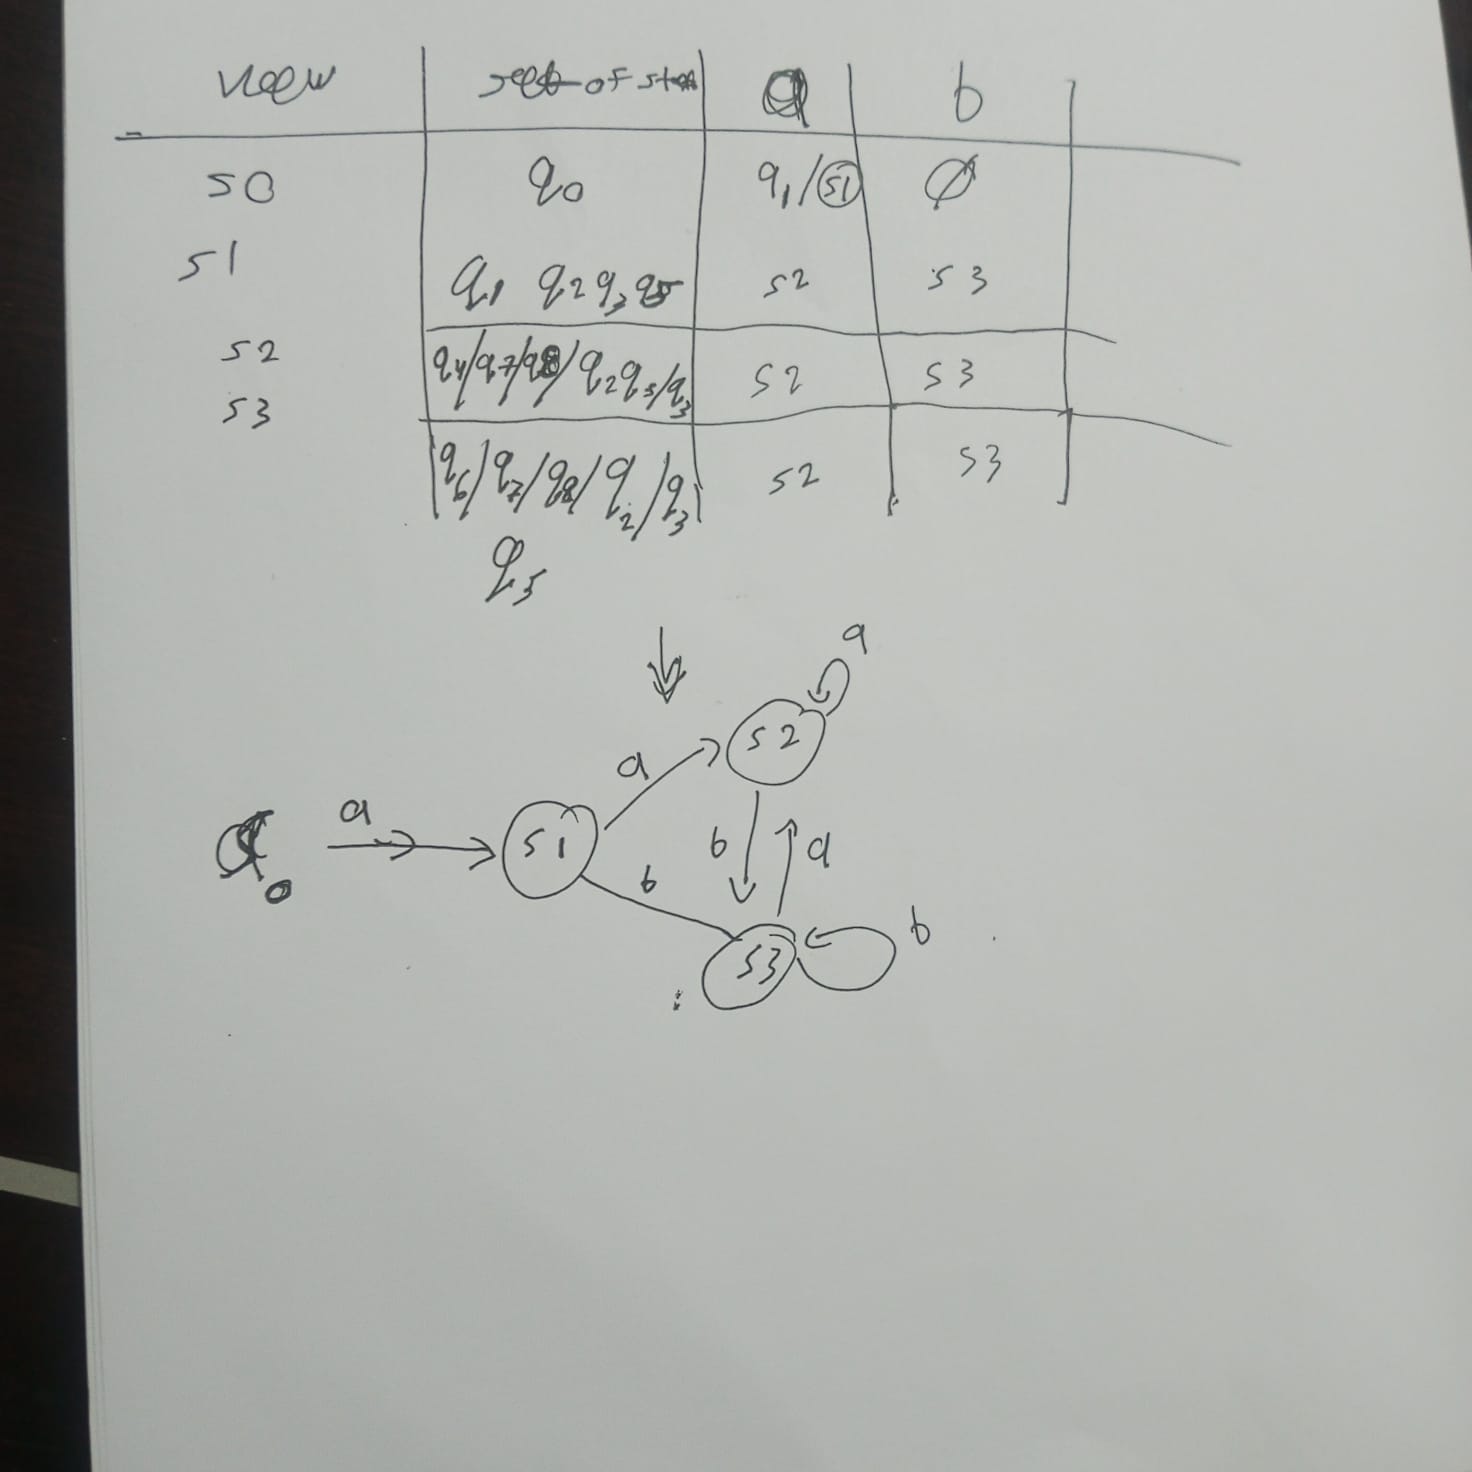 view set of states a b
S0 q0 q1/S1 ∅
S1 q1 q2 q3 q5 S2 S3
S2 q4/q7/q8/q2 q5/q3 S2 S3
S3 q6/q7/q8/q2/q3 S2 S3
q5
a
S2
a
a
q0 S1 b a
b
b
S3